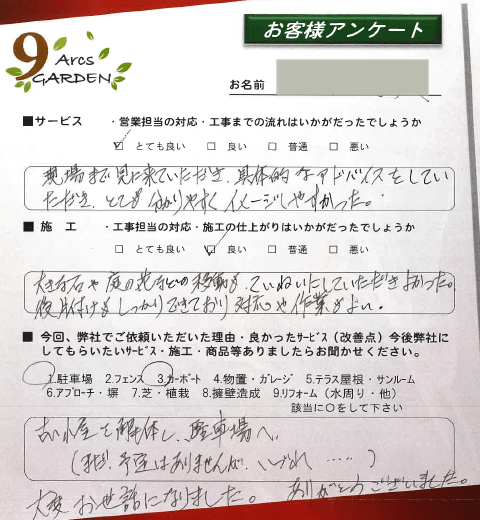 9 Arcs
GARDEN
お客様アンケート
お名前
■サービス ・営業担当の対応・工事までの流れはいかがだったでしょうか
☑ とても良い □ 良い □ 普通 □ 悪い
現場まで見に来ていただき、具体的なアドバイスをしてい
ただき、とても分かりやすくイメージしやすかった。
■施 工 ・工事担当の対応・施工の仕上がりはいかがだったでしょうか
□ とても良い ☑ 良い □ 普通 □ 悪い
大きな石や庭の花などの移動も、ていねいにしていただきよかった。
後片付けもしっかりできており対応や作業もよい。
■今回、弊社でご依頼いただいた理由・良かったサービス（改善点）今後弊社に
してもらいたいサービス・施工・商品等ありましたらお聞かせください。
1.駐車場 2.フェンス 3.カーポート 4.物置・ガレージ 5.テラス屋根・サンルーム
6.アプローチ・塀 7.芝・植栽 8.擁壁造成 9.リフォーム（水周り・他）
該当に○をして下さい
古い小屋を解体し、駐車場へ。
（まだ、予定はありませんが、いづれ ……）
大変お世話になりました。 ありがとうございました。